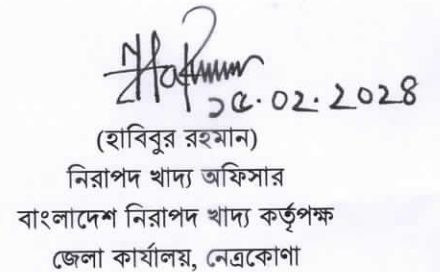 ১৫.০২.২০২৪
(হাবিবুর রহমান)
নিরাপদ খাদ্য অফিসার
বাংলাদেশ নিরাপদ খাদ্য কর্তৃপক্ষ
জেলা কার্যালয়, নেত্রকোণা